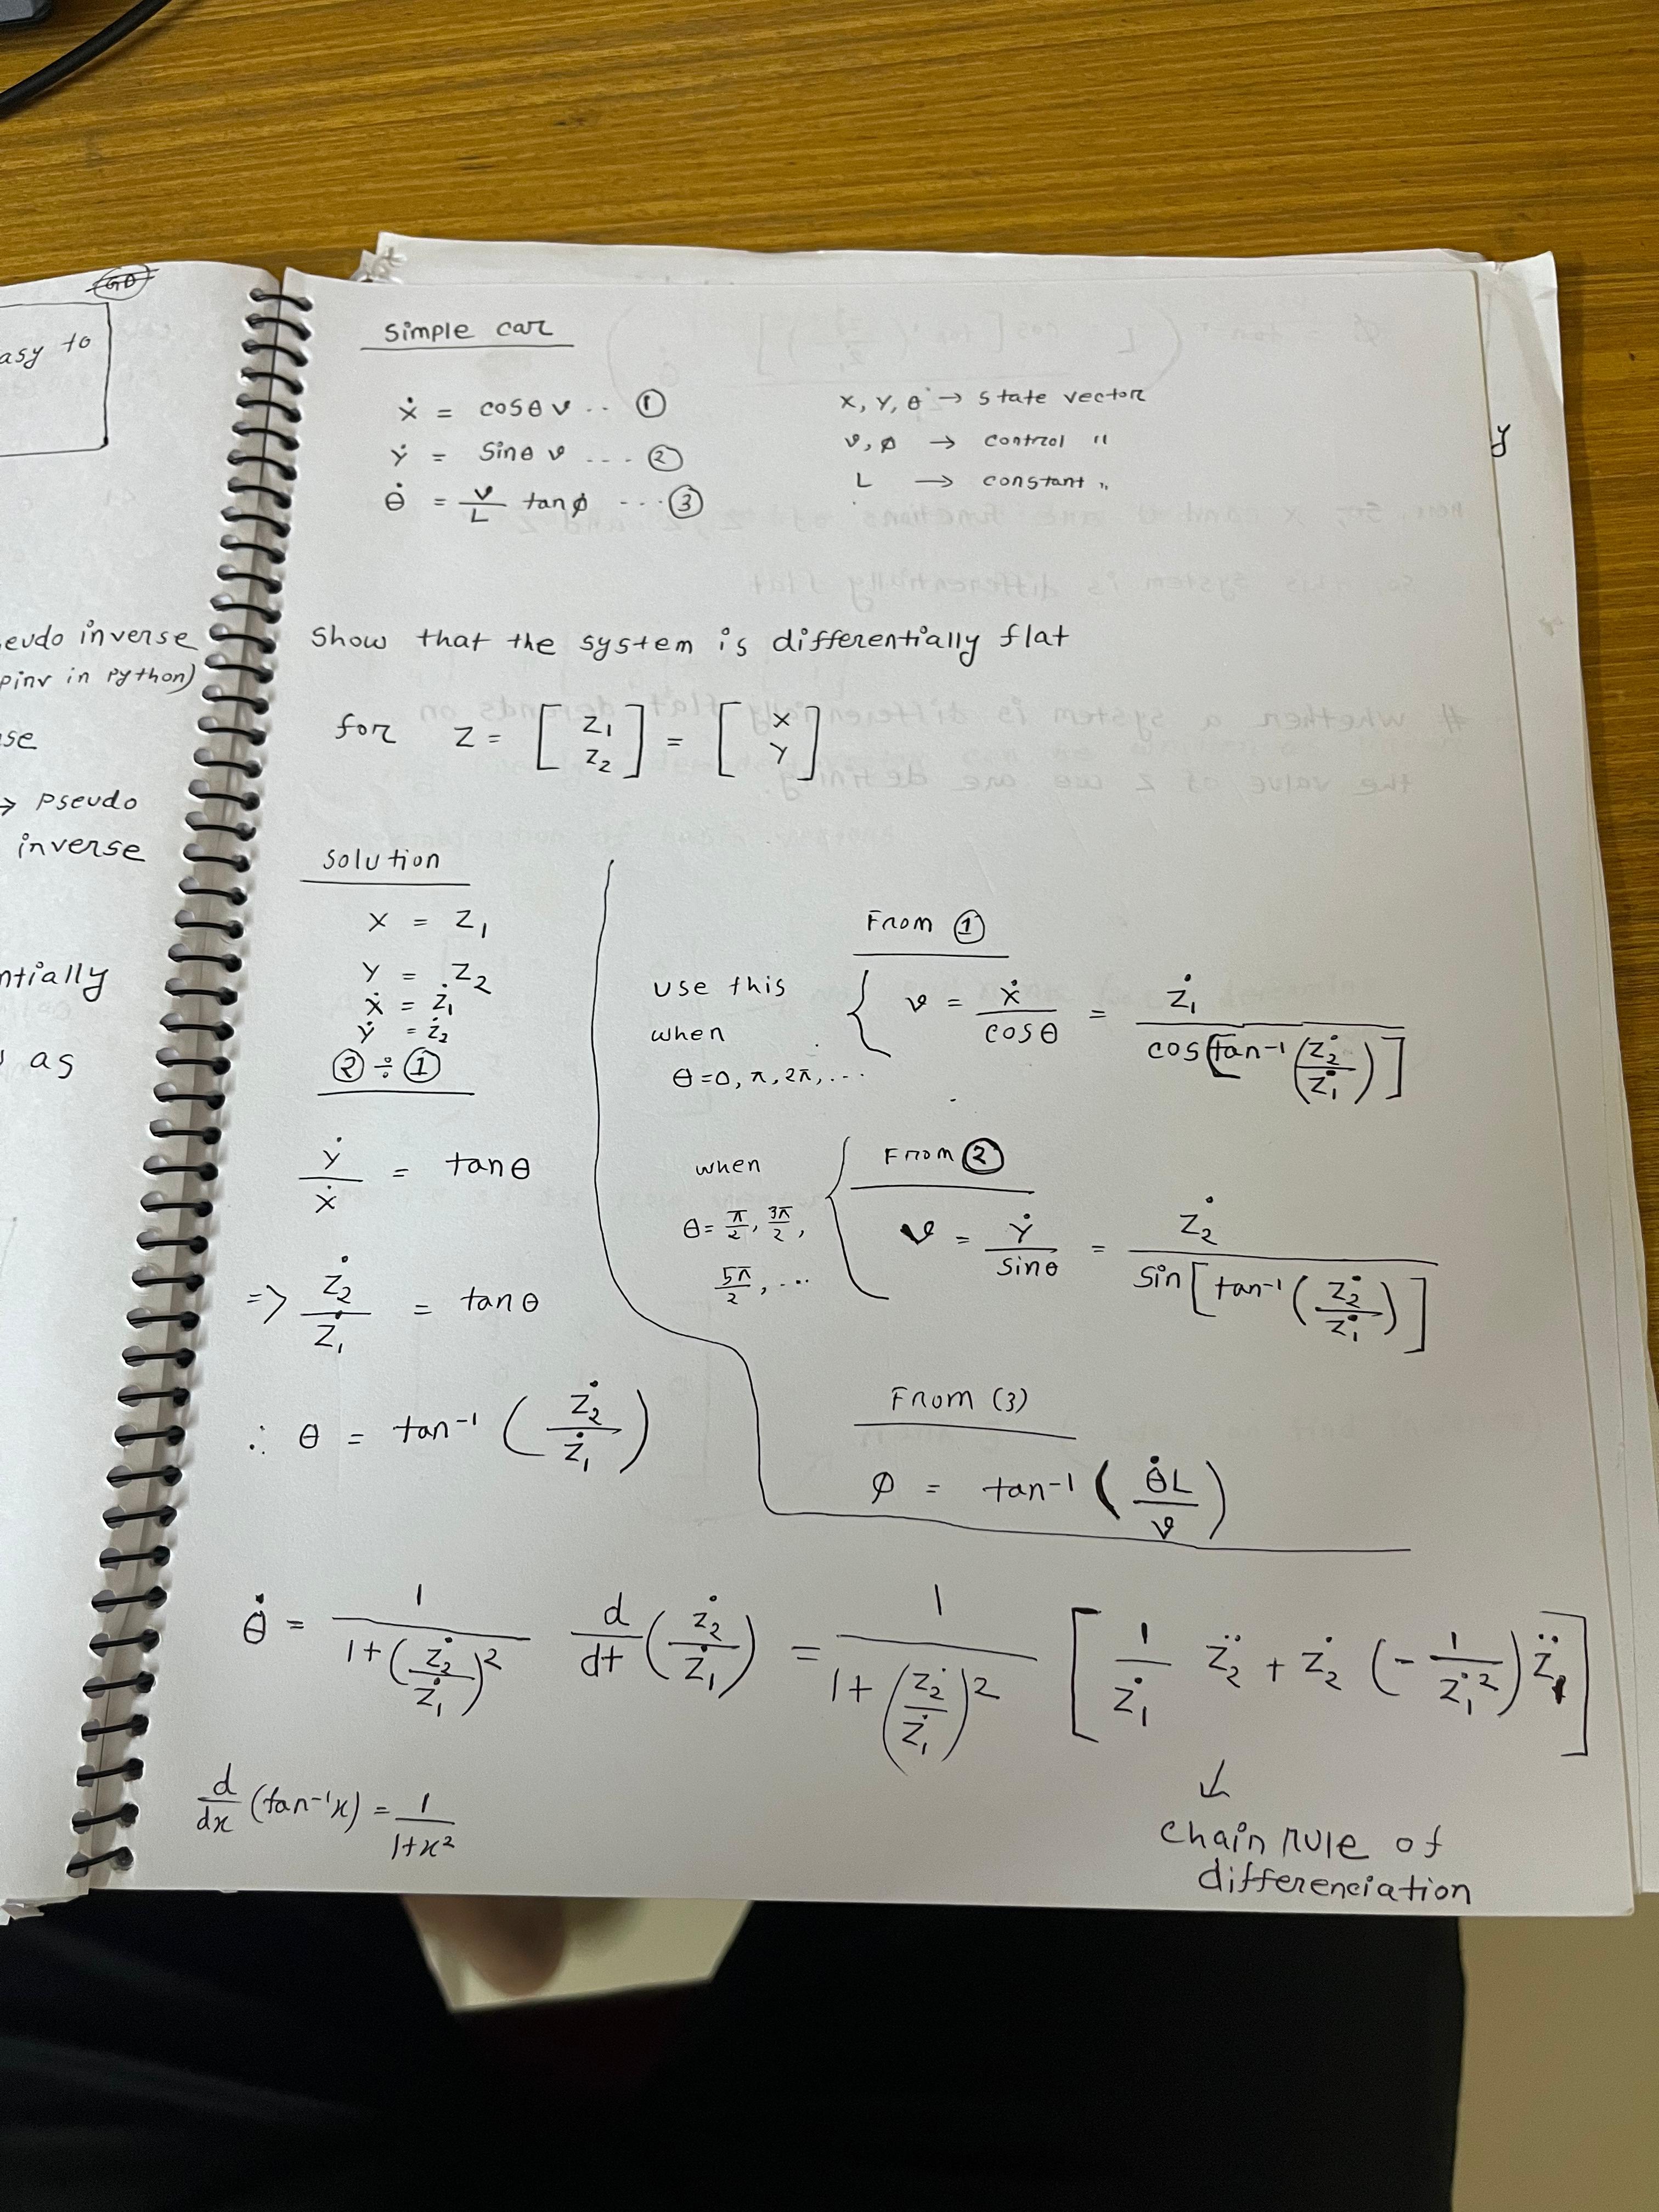 GD
asy to
eudo inverse
pinv in Python)
se
→ Pseudo
inverse
ntially
as
y
Simple car
ẋ = cosθ v .. ①
ẏ = sinθ v .... ②
θ̇ = v/L tanφ ... ③
x, y, θ → state vector
v, φ → control "
L → constant "
Show that the system is differentially flat
for z = [z₁ z₂] = [x y]
Solution
x = z₁
y = z₂
ẋ = ż₁
ẏ = ż₂
② ÷ ①
ẏ/ẋ = tanθ
=> ż₂/ż₁ = tanθ
∴ θ = tan⁻¹ (ż₂/ż₁)
From ①
use this
when
θ = 0, π, 2π, ...
v = ẋ/cosθ = ż₁/cos[tan⁻¹(ż₂/ż₁)]
when
θ = π/2, 3π/2,
5π/2, ...
From ②
v = ẏ/sinθ = ż₂/sin[tan⁻¹(ż₂/ż₁)]
From (3)
φ = tan⁻¹ (θ̇L/v)
θ̇ = 1/(1+(ż₂/ż₁)²) d/dt (ż₂/ż₁) = 1/(1+(ż₂/ż₁)²) [1/ż₁ z̈₂ + ż₂ (-1/ż₁²) z̈₁]
↓
chain rule of
differenciation
d/dx (tan⁻¹x) = 1/(1+x²)